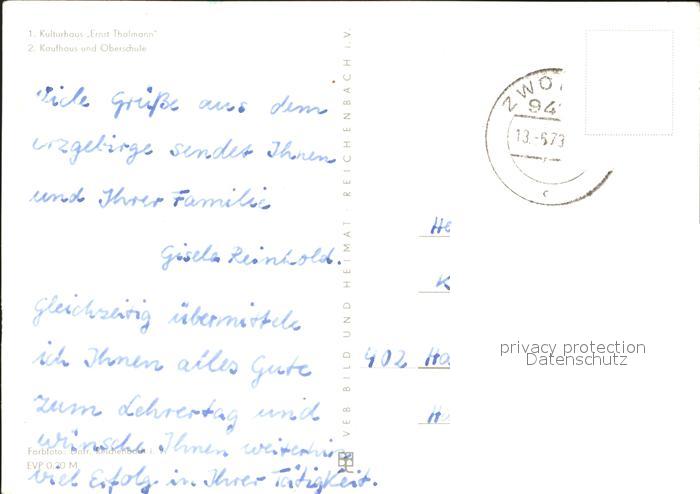 1. Kulturhaus „Ernst Thälmann"
2. Kaufhaus und Oberschule
Viele Grüße aus dem
Erzgebirge sendet Ihnen
und Ihrer Familie
Gisela Reinhold.
Gleichzeitig übermittele
ich Ihnen alles Gute
zum Lehrertag und
wünsche Ihnen weiterhin
viel Erfolg in Ihrer Tätigkeit.
EVP 0,20 M
VEB BILD UND HEIMAT REICHENBACH i. V.
ZWÖ
94
13.-6.73
c
He
K
402 Ha
privacy protection
Datenschutz